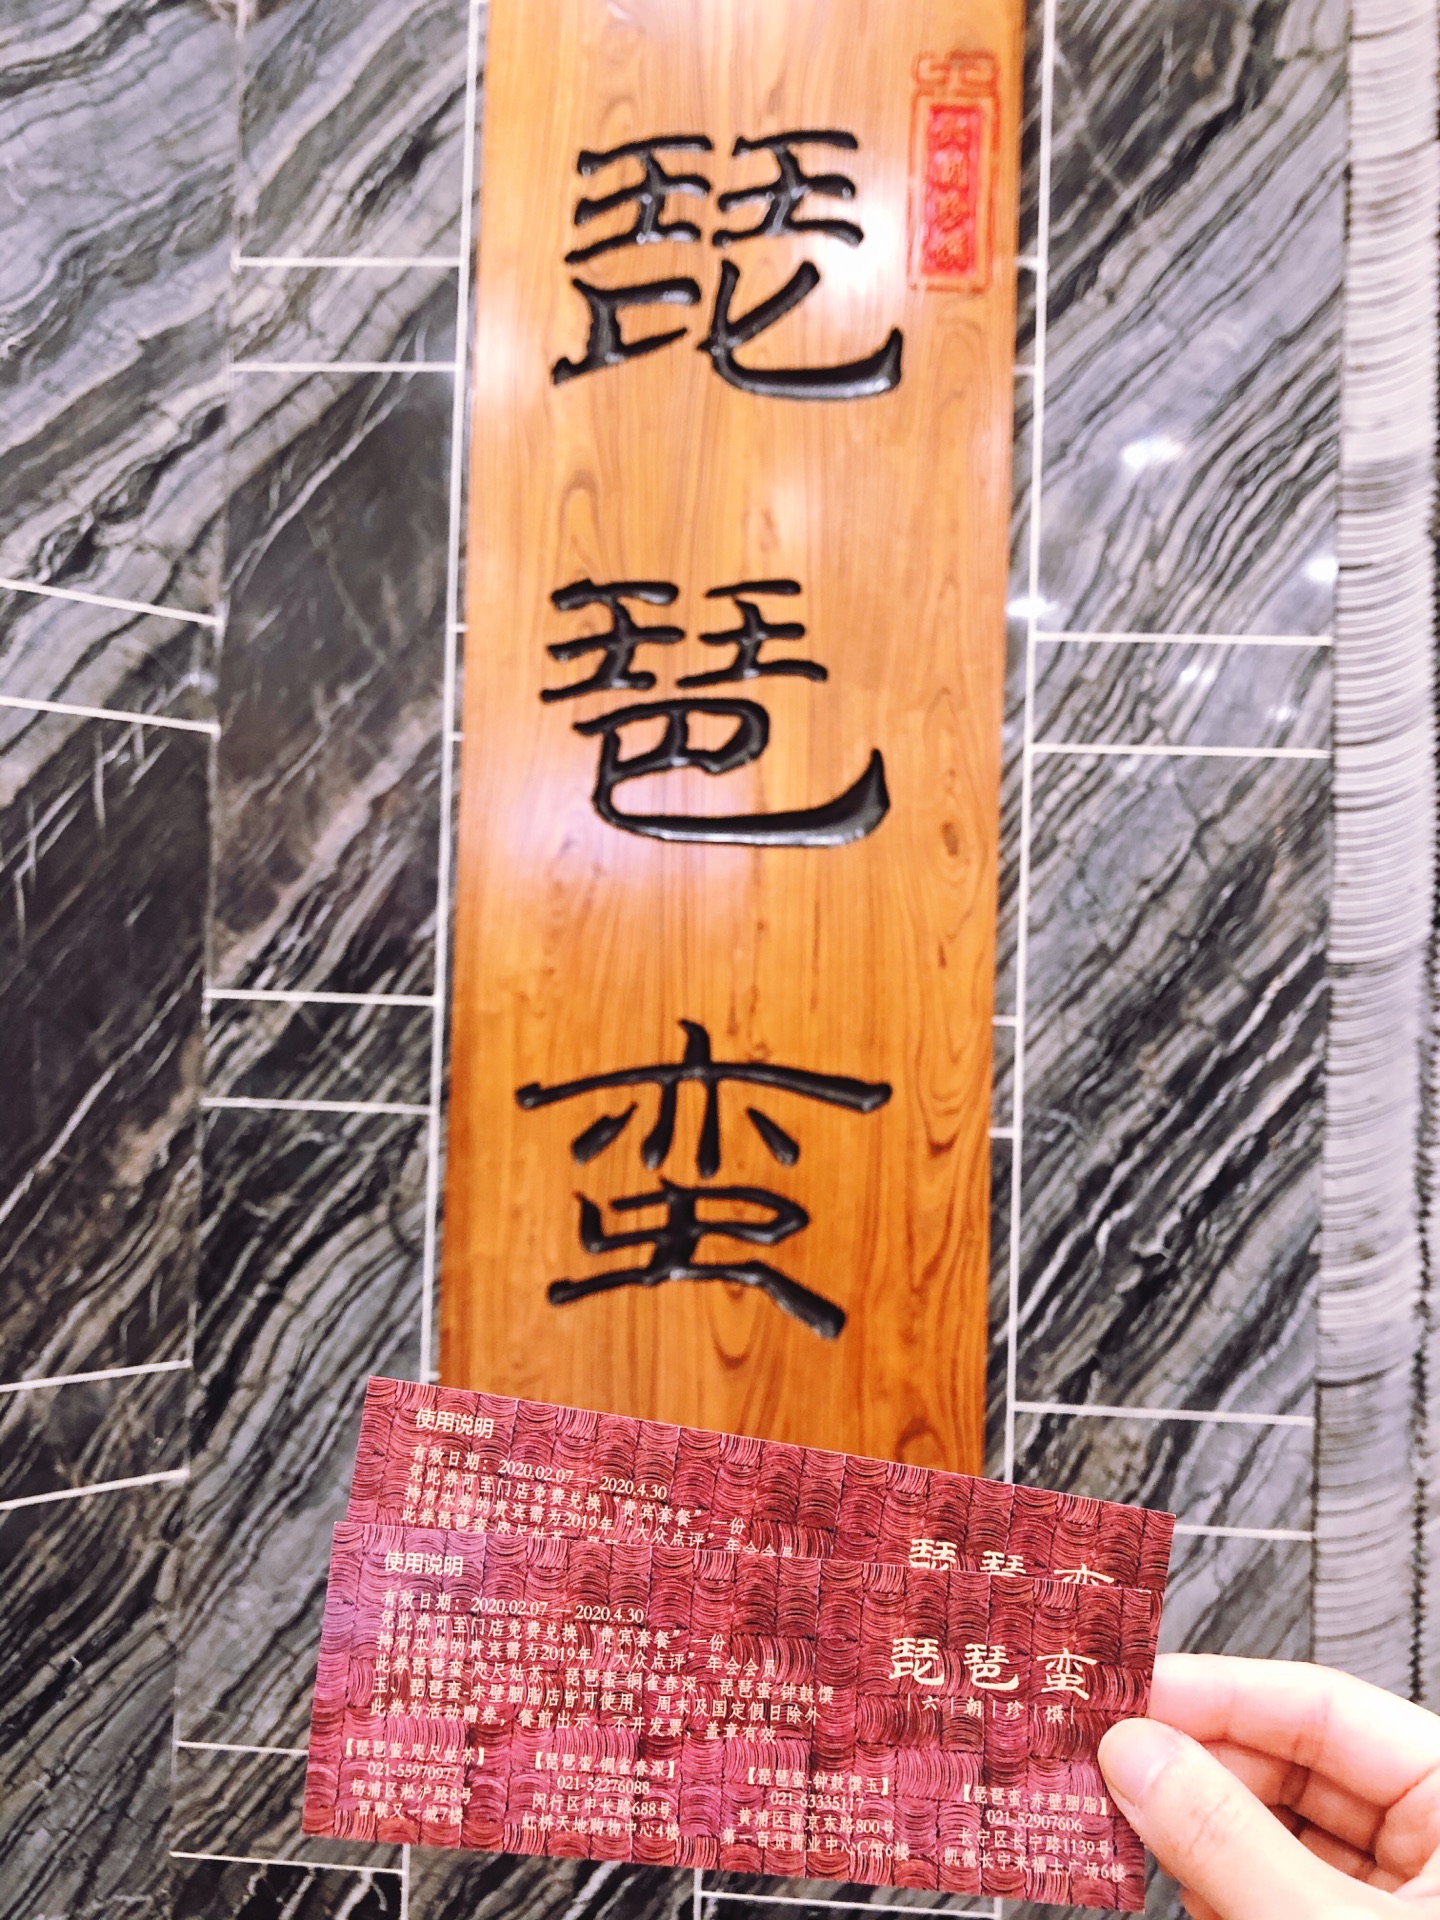 琵
琶
蛮
六朝珍馔
使用说明
有效日期：2020.02.07 — 2020.4.30
凭此券可至门店免费兑换“贵宾套餐”一份
持有本券的贵宾需为2019年“大众点评”年会会员
此券琵琶蛮-咫尺姑苏
琵琶蛮
使用说明
有效日期：2020.02.07 — 2020.4.30
凭此券可至门店免费兑换“贵宾套餐”一份
持有本券的贵宾需为2019年“大众点评”年会会员
此券琵琶蛮-咫尺姑苏、琵琶蛮-铜雀春深、琵琶蛮-钟鼓馔
玉、琵琶蛮-赤壁胭脂店皆可使用，周末及国定假日除外
此券为活动赠券，餐前出示，不开发票，盖章有效
琵琶蛮
|六|朝|珍|馔|
【琵琶蛮-咫尺姑苏】
021-55970977
杨浦区淞沪路8号
百联又一城7楼
【琵琶蛮-铜雀春深】
021-52276088
闵行区申长路688号
虹桥天地购物中心4楼
【琵琶蛮-钟鼓馔玉】
021-63335117
黄浦区南京东路800号
第一百货商业中心C馆6楼
【琵琶蛮-赤壁胭脂】
021-52907606
长宁区长宁路1139号
凯德长宁来福士广场6楼